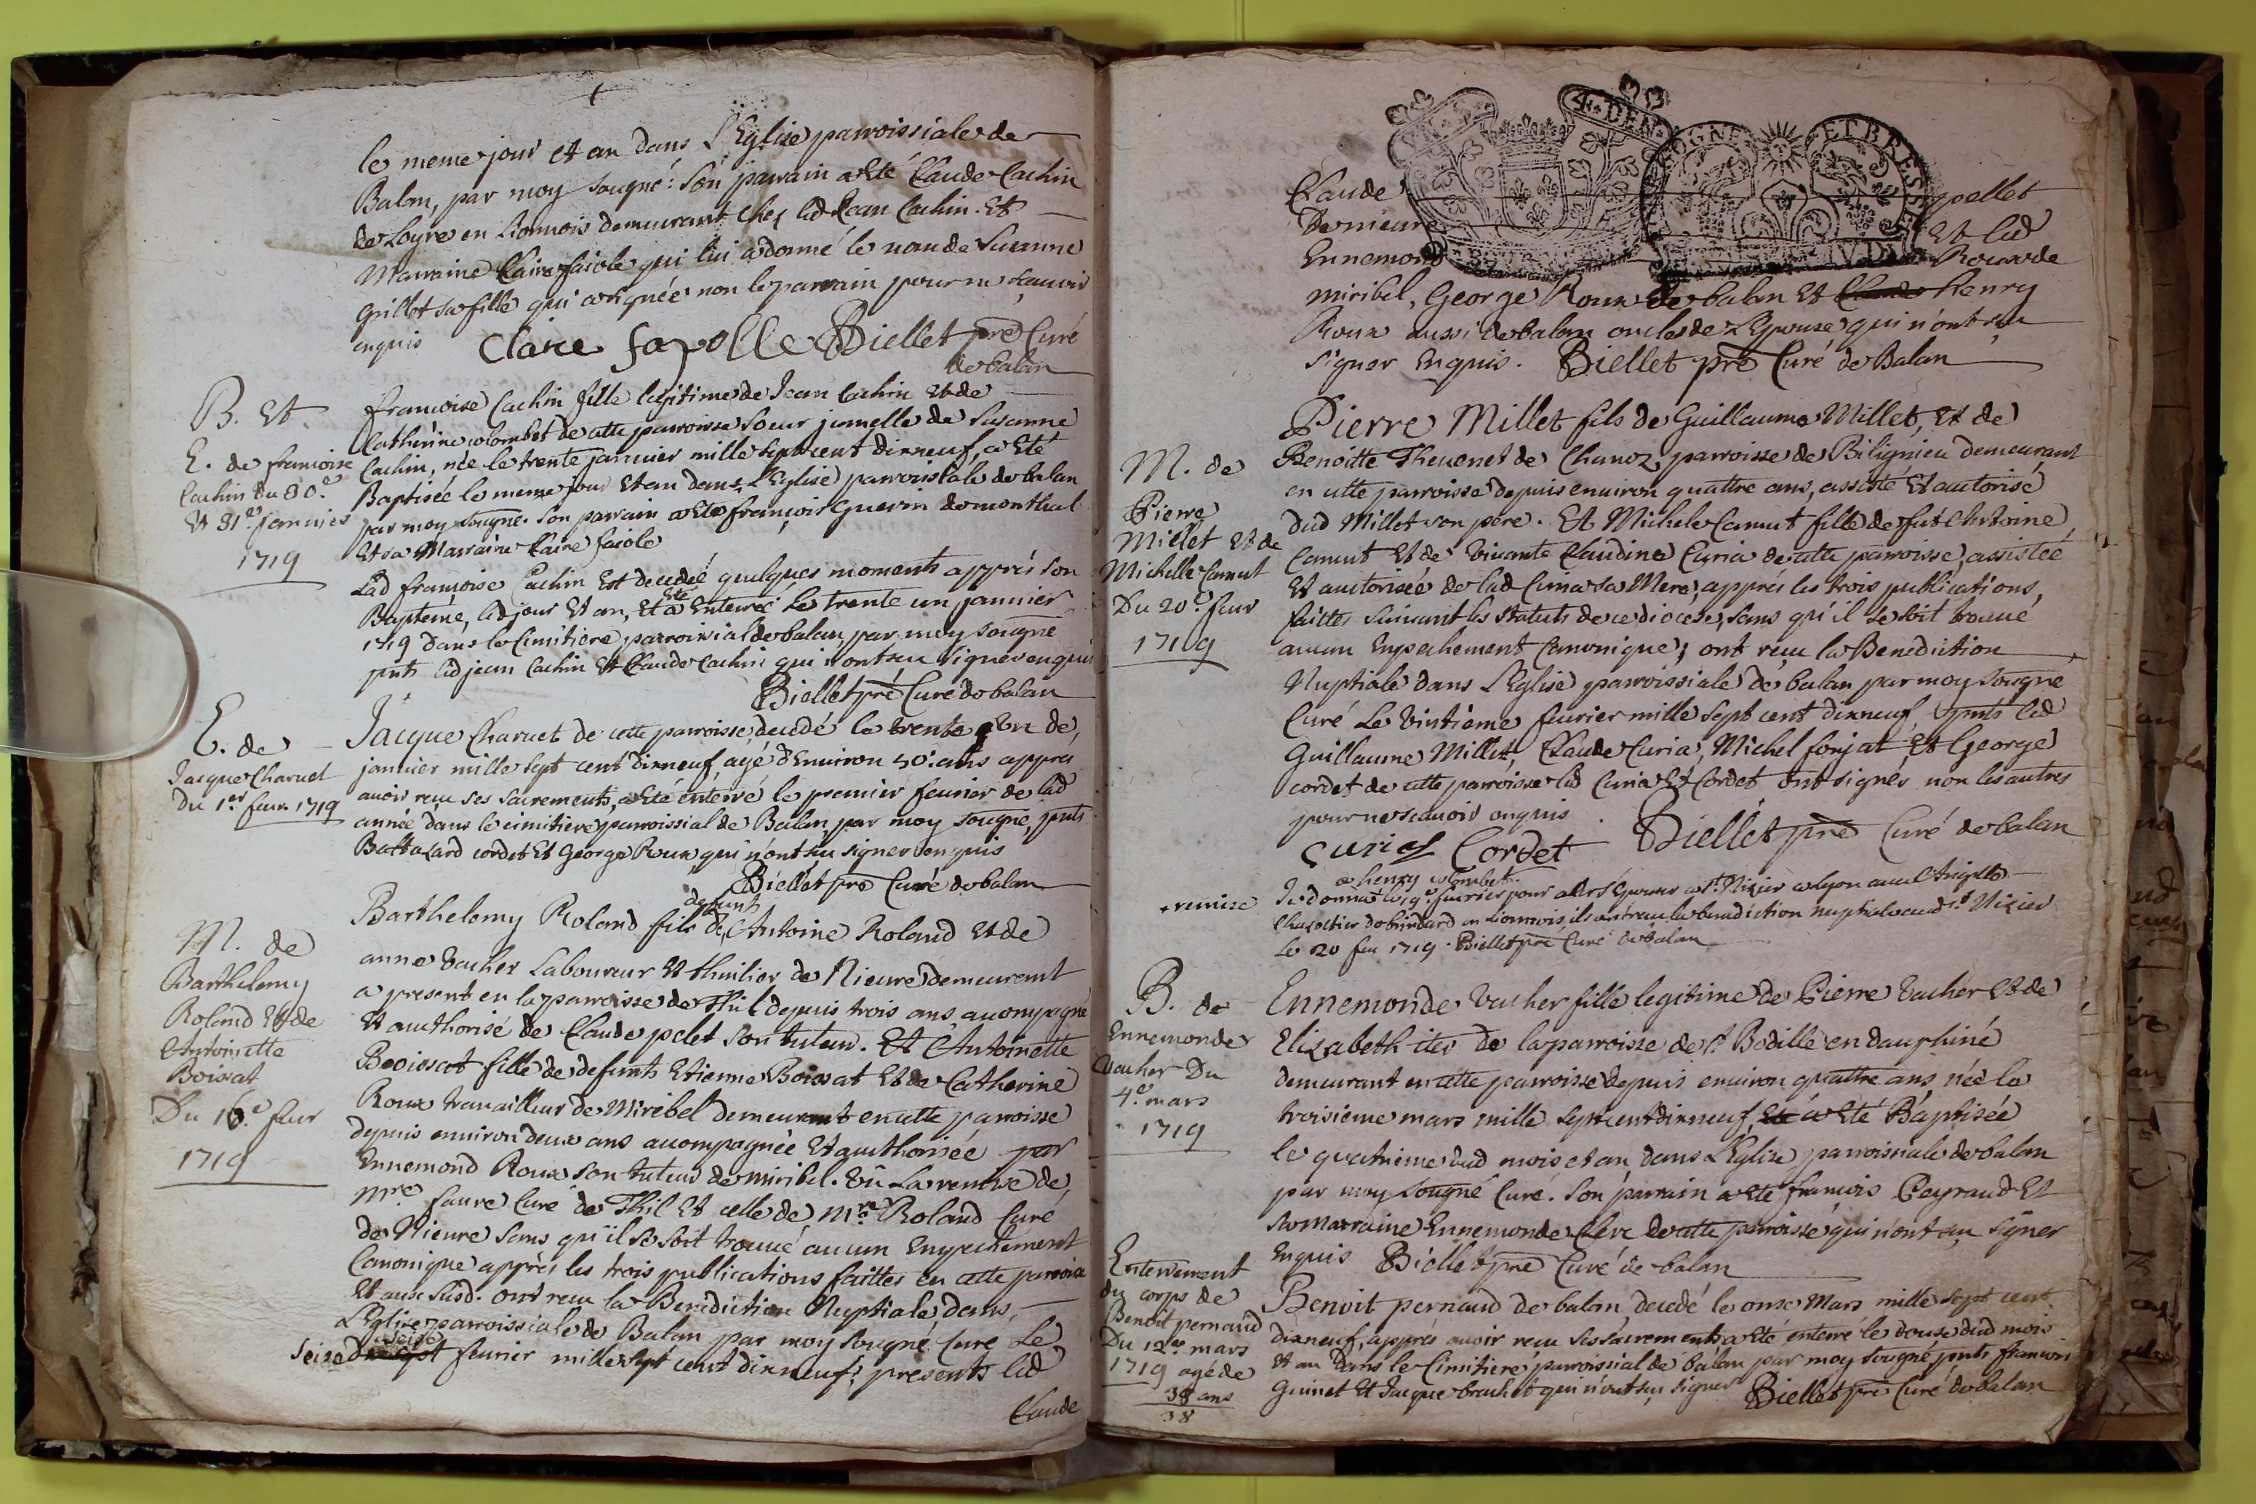 le meme jour et an dans l'Eglise parroissiale de
Balan, par moy sougné: son parrain a eté Claude Cachin
de Loyre en Lionnois demeurant chez lad Jean Cachin. Et
Marraine Claire faiole qui lui a donné le nom de Susanne
Grillet sa fille qui a signée non le parrain pour ne scauoir
enquis Claire fayolle Biellet pre Curé
de balan
B. Et.
E. de francoise
Cachin du 30.e
Et 31.e januier
1719
francoise Cachin fille legitime de Jean Cachin et de
Catherine colombet de cette parroisse soeur jumelle de Susanne
Cachin, née le trente januier mille sept cent dixneuf, a eté
Baptisée le meme jour et an dans l'Eglise parroissiale de balan
par moy sougné. son parrain a eté françois Guerin de monthul
Et sa Marraine Claire faiole
Lad francoise Cachin est decedeé quelques moments apprés son
Bapteme, led jour et an, et a eté Enterreé le trente un januier
1719 dans le cimitiere parroissial de balan par moy sougné
pnts led jean Cachin et Claude Cachin qui n'ont sceu signer enquis
Biellet pre Curé de balan
E. de
Jacque Charuet
Du 1.er feur 1719
Jacque Charuet de cette parroisse, decedé le trente un de
januier mille sept cent dixneuf, agé d'Enuiron 50 ans appres
auoir receu ses sacrements, a eté enterré le premier feurier de lad
année dans le cimitiere parroissial de Balan par moy sougné, pnts
Baltazard cordet et George Roux qui n'ont sceu signer enquis
Biellet pre Curé de balan
M. de
Barthelemy
Roland et de
Antoinette
Boissat
Du 16.e feur
1719
Barthelemy Roland fils de defunt Antoine Roland et de
anne Vacher Laboureur et thuilier de Nieure demeurant
a present en la parroisse de Thil depuis trois ans, acompagné
Et authorisé de Claude pelet son tuteur. Et Antoinette
Boissat fille de defunts Etienne Boissat et de Catherine
Roux trauailleur de Miribel demeurant en cette parroisse
depuis enuiron deux ans acompagnée et authorisée par
Ennemond Roux son tuteur de miribel. Vû la remise de
Mre faure Curé de Thil et celle de Mre Roland Curé
de Nieure sans qu'il se soit trouué aucun Enpechement
Canonique apprés les trois publications faittes en cette parroisse
Et aux susd. ont receu la Benediction Nuptiale dans
l'Eglise parroissiale de Balan par moy sougné Curé Le
seize feurier mille sept cent dixneuf: presents led
Claude
4. DEN.
BOURGOGNE ET BRESSE
Claude pellet
Demeure Et led
Ennemond Roux de
miribel, George Roux de balan et Henry
Roux aussi de balan oncles de L'Epouse qui n'ont sceu
signer enquis. Biellet pre Curé de Balan
M. de
Pierre
Millet et de
Michelle Camut
Du 20.e feur
1719
Pierre Millet fils de Guillaume Millet, et de
Benoitte Theuenet de Chanoz parroisse de Bilignieu demeurant
en cette parroisse depuis enuiron quattre ans, assisté et autorisé
dud Millet son pere. Et Michele Camut fille de fut Antoine
Camut et de viuante Claudine Curia de cette parroisse, assistée
Et autorisée de lad Curia sa Mere, apprés les trois publications,
faittes suiuant les statuts de ce diocese, sans qu'il se soit trouué
aucun Enpechement Canonique; ont receu la Benediction
Nuptiale dans l'Eglise parroissiale de balan par moy sougné
Curé Le vintieme feurier mille sept cent dixneuf, pnts led
Guillaume Millet, Claude Curia, Michel fonjat, Et George
cordet de cette parroisse led Curia et Cordet ont signés non les autres
pour ne scauoir enquis.
Curia Cordet Biellet pre Curé de balan
remise
a henry colombet
J'ai donné le 9.e feurier pour aller Epouser a St. Nizier a Lyon auec
en Lionnois, ils ont receu la benediction nuptiale aud St Nizier
Le 20 feu 1719. Biellet pre Curé de balan
B. de
Ennemonde
Vacher Du
4.e mars
1719
Ennemonde Vacher fille legitime de Pierre Vacher et de
Elizabeth iter de la parroisse de St. Bodille en dauphiné
demeurant en cette parroisse depuis enuiron quattre ans née le
troisieme mars mille sept cent dixneuf, a eté Baptisée
le quatrieme dud mois et an, dans l'Eglise parroissiale de balan
par moy sougné Curé. son parrain a eté francois Peyraud et
sa marraine Ennemonde Clere de cette parroisse qui n'ont sceu signer
Enquis Biellet pre Curé de balan
Enterrement
du corps de
Benoit pernaud
Du 12.e mars
1719 agé de
38 ans
38
Benoit pernaud de balan, decedé le onse Mars mille sept cent
dixneuf, apprés auoir receu ses sacrements a eté enterré le douse dud mois
et an dans le Cimitiere parroissial de balan par moy sougné pnts francois
Guinet et Jacque brachet qui n'ont sceu signer Biellet pre Curé de balan